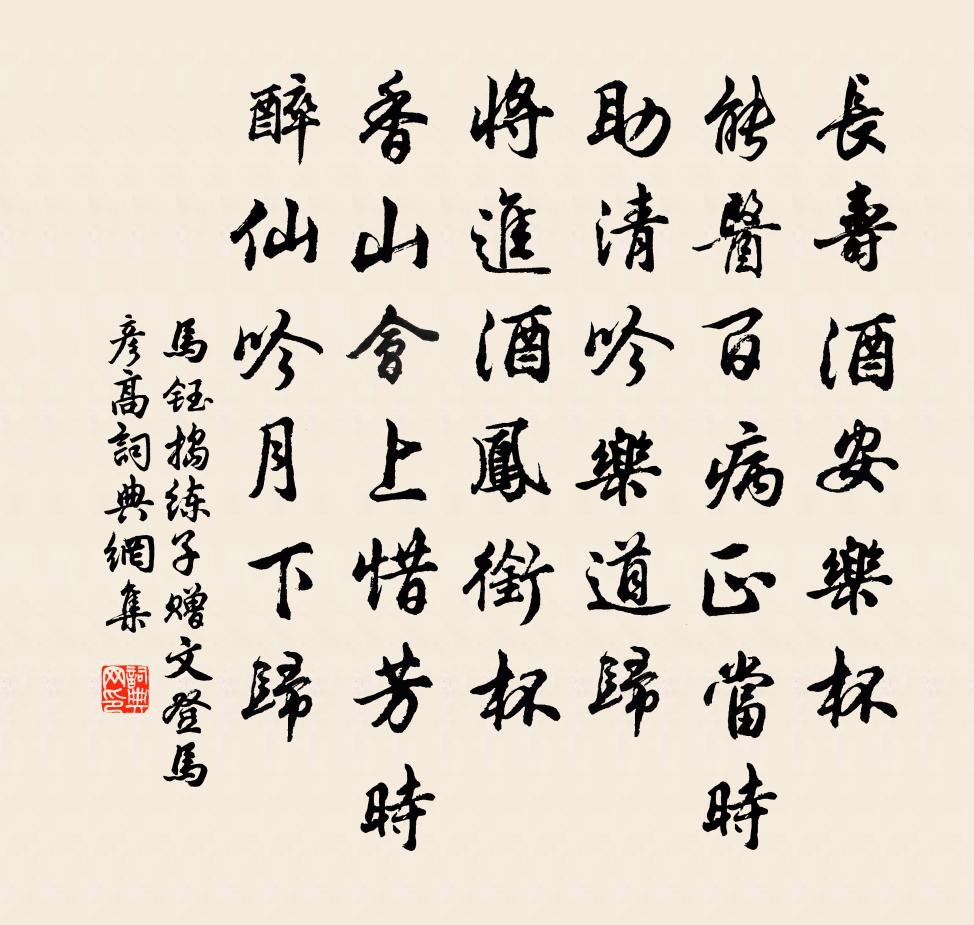 長壽酒安樂杯
能醫百病正當時
助清吟樂道歸
將進酒鳳銜杯
香山會上惜芳時
醉仙吟月下歸
馬鈺搗练子赠文登馬
彦高詞典網集
詞典
网印